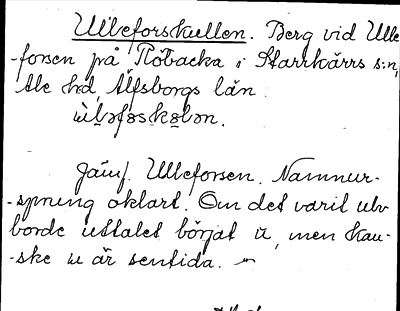 Ulleforskullen. Berg vid Ulle-
-forsen på Röbacka i Starrkärrs s:n,
Ale hd, Älfsborgs län.

Jämf. Ulleforsen. Namnur-
-sprung oklart. Om det varit ulv
borde uttalet börjat u, men kan-
-ske u är sentida.